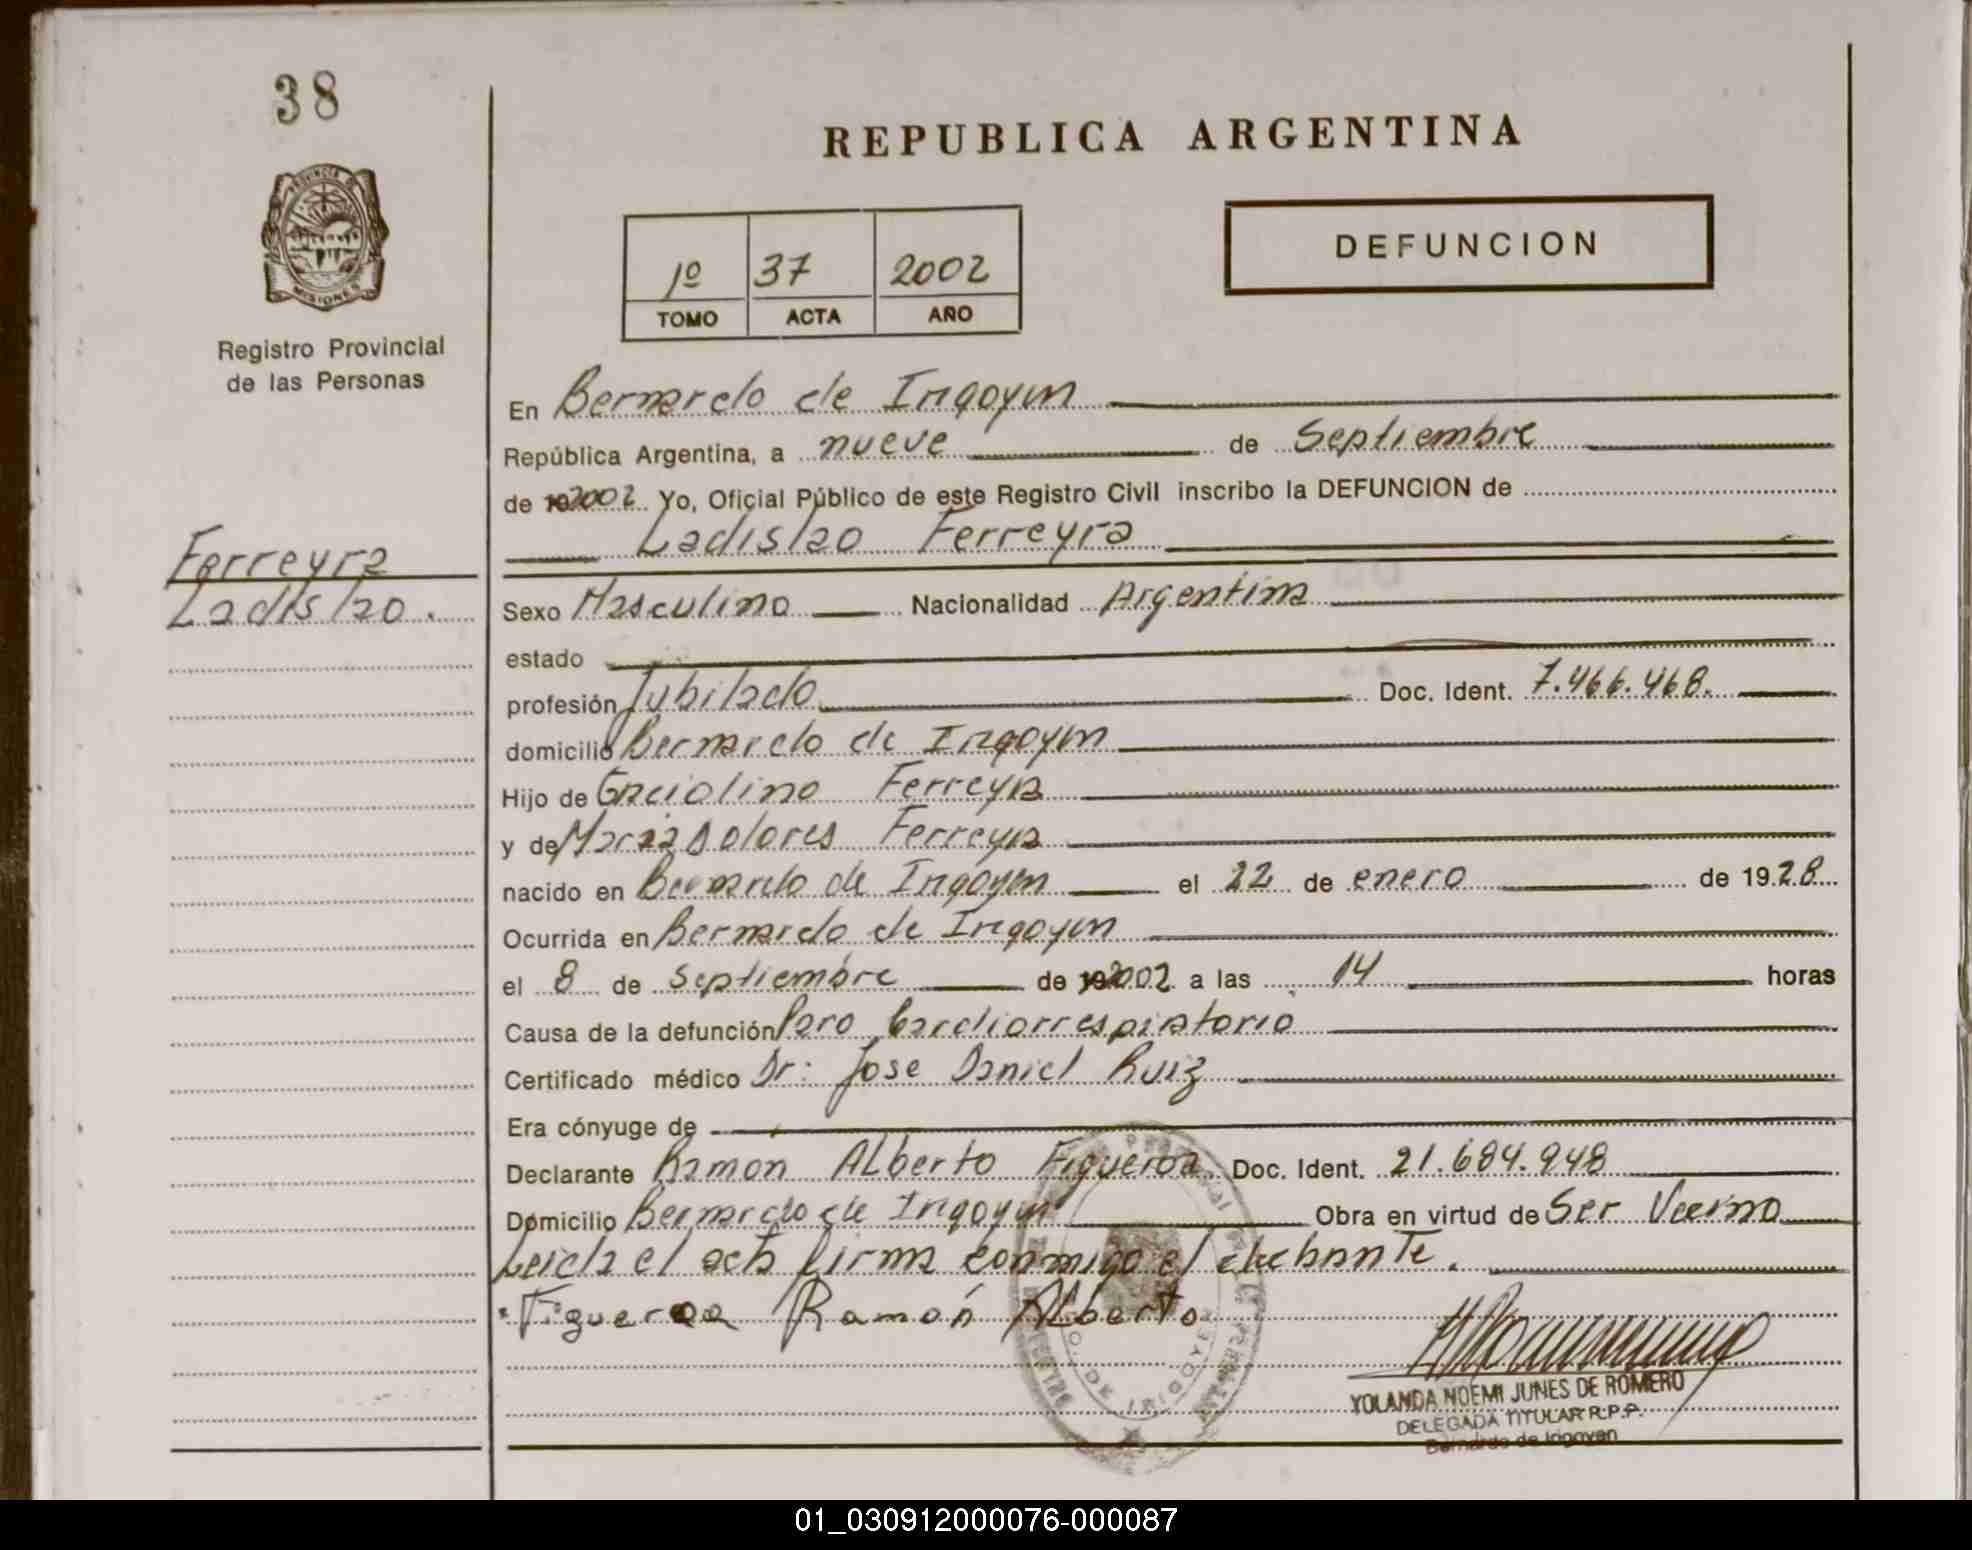 38
PROVINCIA DE
MISIONES
Registro Provincial
de las Personas
Ferreyra
Ladislao.
REPUBLICA ARGENTINA
1º 37 2002
TOMO ACTA AÑO
DEFUNCION
En Bernardo de Irigoyen
República Argentina, a nueve de Septiembre
de 2002 Yo, Oficial Público de este Registro Civil inscribo la DEFUNCION de
Ladislao Ferreyra
Sexo Masculino Nacionalidad Argentina
estado
profesión Jubilado Doc. Ident. 7.466.468.
domicilio Bernardo de Irigoyen
Hijo de Graciolino Ferreyra
y de Maria Dolores Ferreyra
nacido en Bernardo de Irigoyen el 22 de enero de 1928
Ocurrida en Bernardo de Irigoyen
el 8 de Septiembre de 2002 a las 14 horas
Causa de la defunción Paro Cardiorrespiratorio
Certificado médico Dr: Jose Daniel Ruiz
Era cónyuge de
Declarante Ramon ALberto Figueroa Doc. Ident. 21.684.948
Domicilio Bernardo de Irigoyen Obra en virtud de Ser Vecino
Leida el acta firma conmigo el declarante.
Figueroa Ramón ALberto
YOLANDA NOEMI JUNES DE ROMERO
DELEGADA TITULAR R.P.P.
Bernardo de Irigoyen
01_030912000076-000087